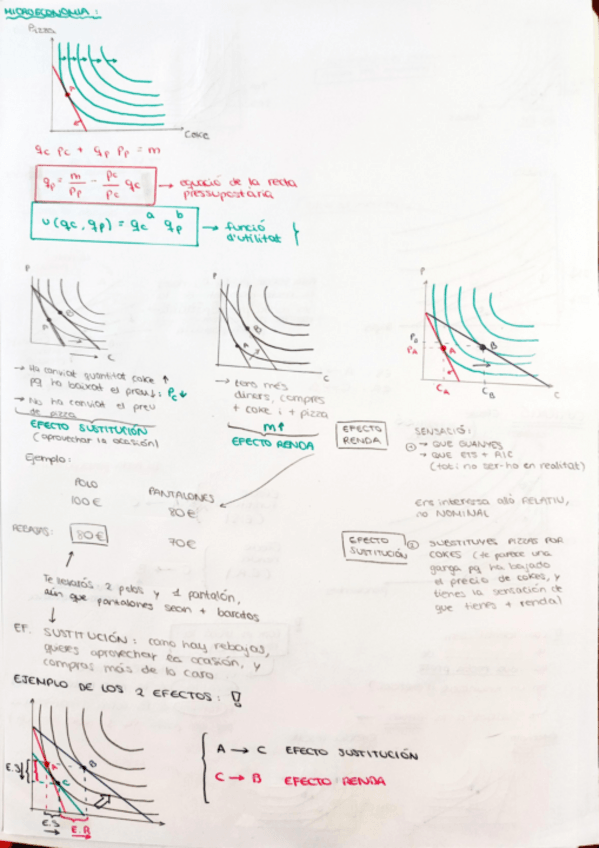 MICROECONOMIA:
Pizza
A
Coke
qc Pc + qp Pp = m
qp = m/Pp - Pc/Pc qc → equació de la recta
pressupostària
u(qc, qp) = qc^a qp^b → funció
d'utilitat
P
A
B
C
→ Ha canviat quantitat coke ↑
pq ha baixat el preu: Pc↓
→ No ha canviat el preu
de pizza
EFECTO SUSTITUCIÓN
(aprovechar la ocasión)
P
A
B
C
→ tens més
diners, compres
+ coke i + pizza
m↑
EFECTO RENDA
P
PB
PA
A
B
CA
CB
C
EFECTO
RENDA
SENSACIÓ:
① → QUE GUANYES
→ QUE ETS + RIC
(tot i no ser-ho en realitat)
Ens interessa allò RELATIU,
no NOMINAL
EFECTO
SUSTITUCIÓN
② SUBSTITUYES PIZZAS POR
COKES (te parece una
ganga pq ha bajado
el precio de cokes, y
tienes la sensación de
que tienes + renda)
Ejemplo:
POLO
PANTALONES
100€
80€
REBAJAS:
80€
70€
Te llevarás 2 polos y 1 pantalón,
aún que pantalones sean + baratos
EF. SUSTITUCIÓN: como hay rebajas,
quieres aprovechar la ocasión, y
compras más de lo caro
EJEMPLO DE LOS 2 EFECTOS: !
E.S
A
B
C
E.S
E.R
A → C EFECTO SUSTITUCIÓN
C → B EFECTO RENDA